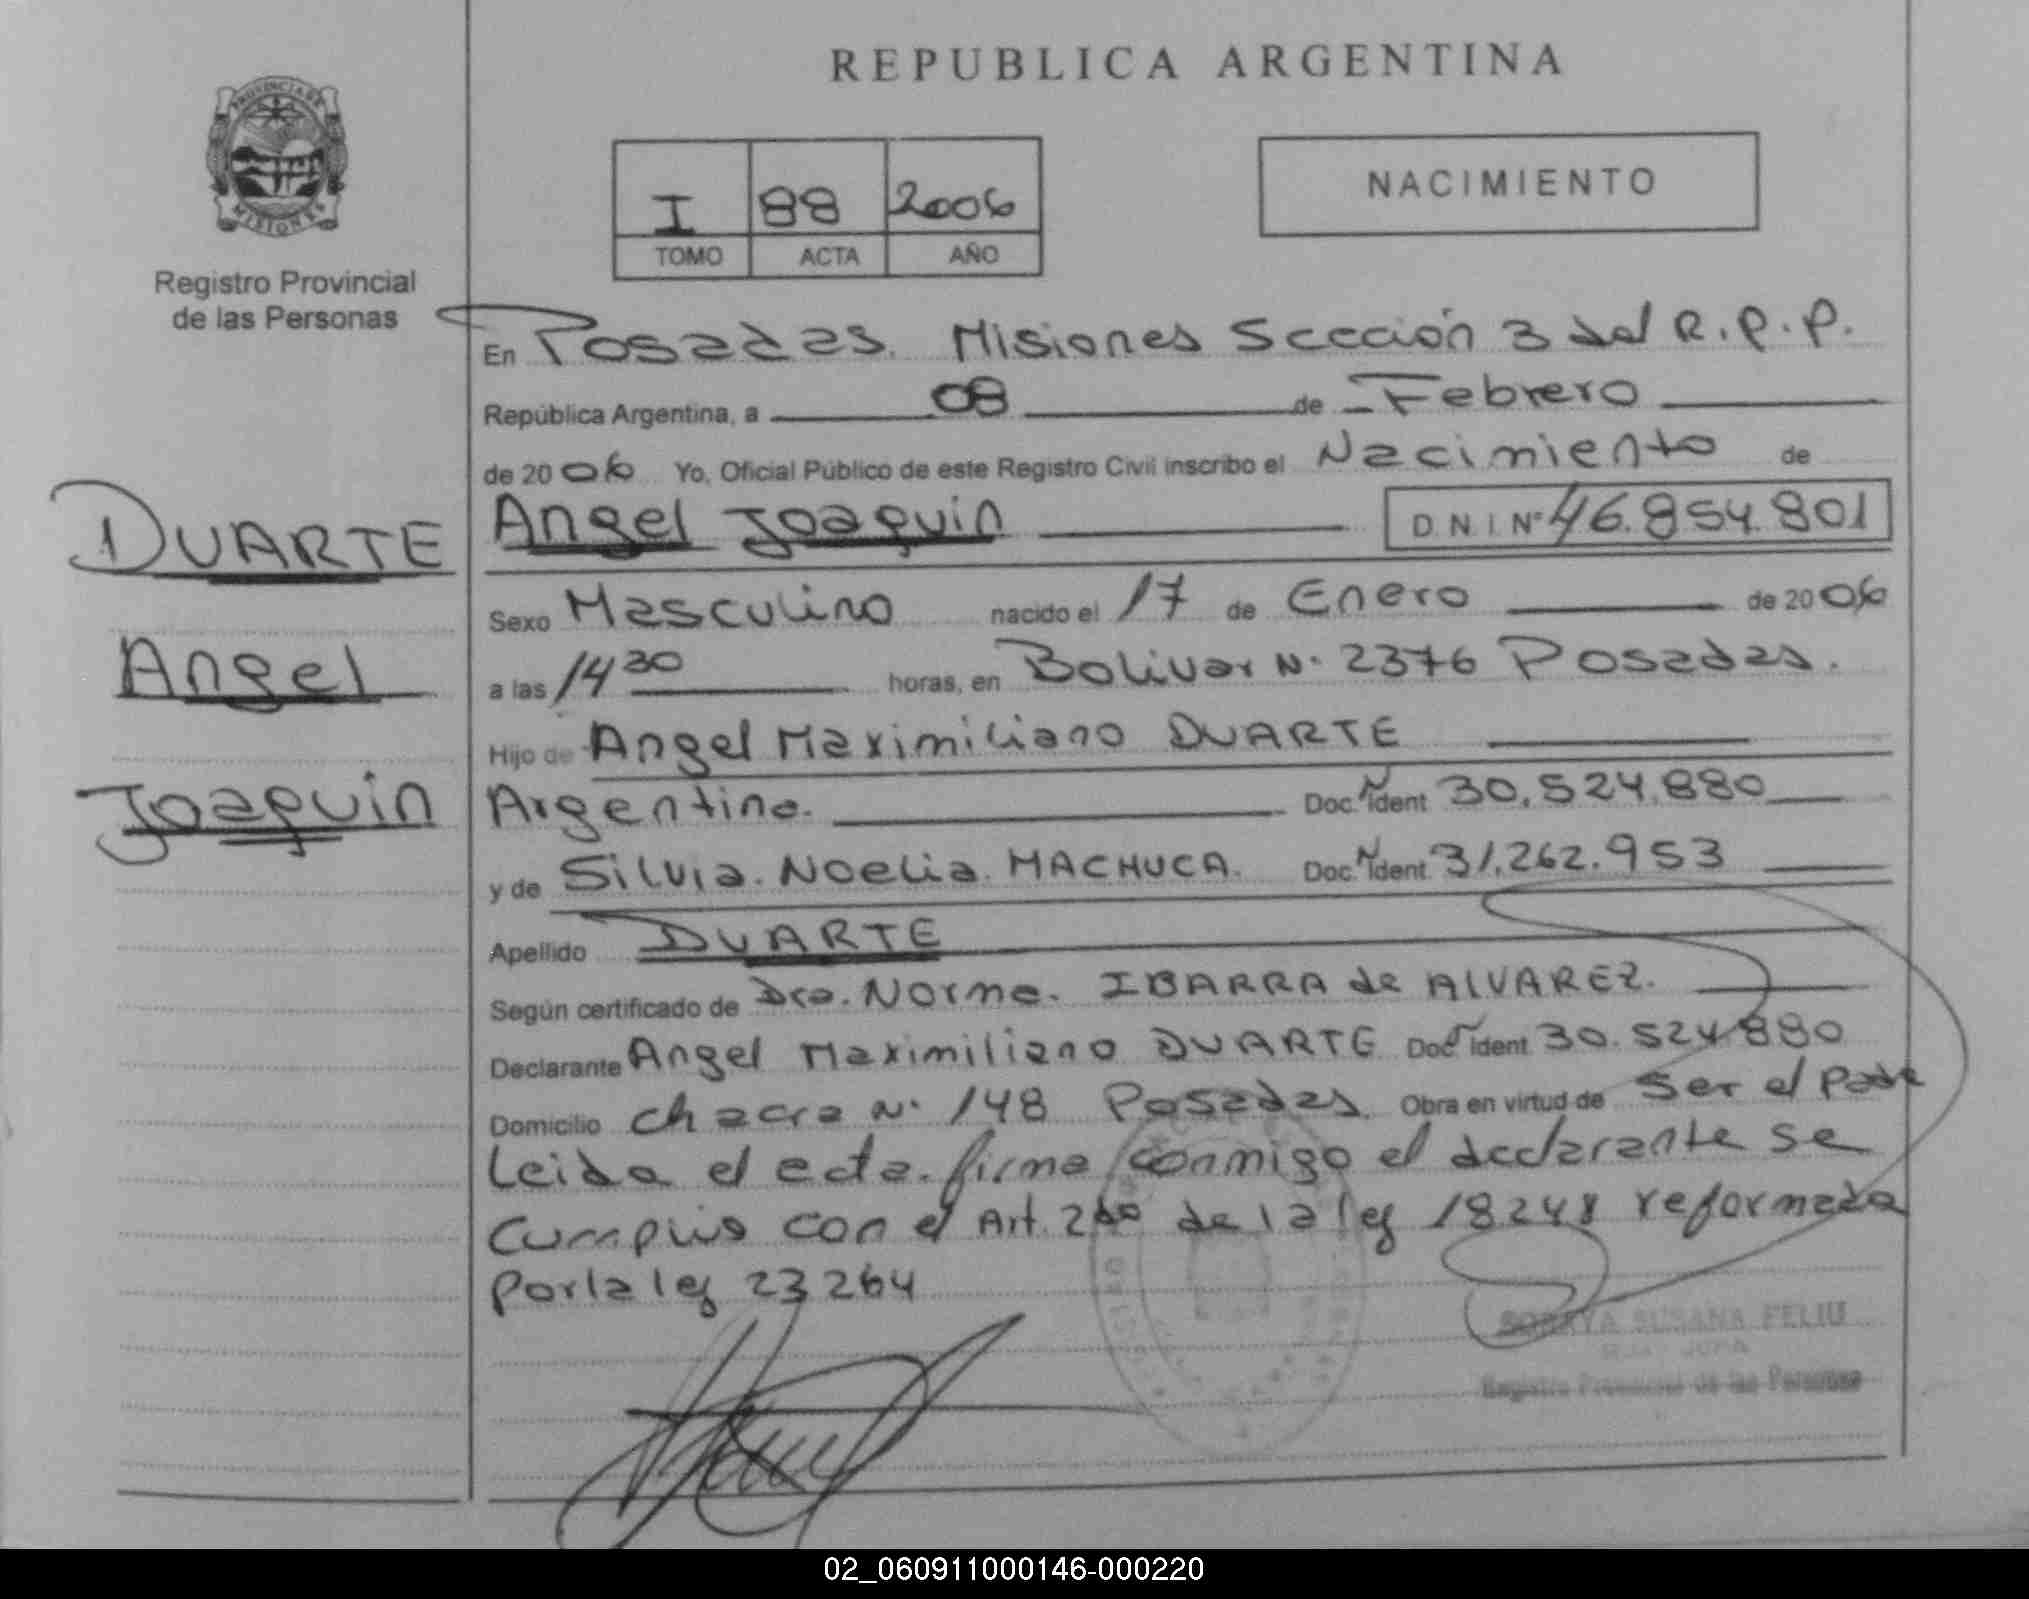 REPUBLICA ARGENTINA
PROVINCIA DE
MISIONES
Registro Provincial
de las Personas
I 88 2006
TOMO ACTA AÑO
NACIMIENTO
DUARTE
Angel
Joaquin
En Posadas. Misiones Sección 3 del R.P.P.
República Argentina, a 08 de Febrero
de 2006 Yo, Oficial Público de este Registro Civil inscribo el Nacimiento de
Angel Joaquin D.N.I. Nº 46.854.801
Sexo Masculino nacido el 17 de Enero de 2006
a las 14 30 horas, en Bolivar N. 2376 Posadas.
Hijo de Angel Maximiliano DUARTE
Argentino. Doc. Ident 30.524.880
y de Silvia. Noelia. MACHUCA. Doc. Ident. 31.262.953
Apellido DUARTE
Según certificado de Dra. Norma. IBARRA de ALVAREZ.
Declarante Angel Maximiliano DUARTE Doc Ident 30.524.880
Domicilio chacra N. 148 Posadas. Obra en virtud de Ser el Padre
Leida el acta. firma conmigo el declarante se
cumplió con el Art. 2do de la ley 18248 reformada
por la ley 23264
SORAYA SUSANA FELIU
Registro Provincial de las Personas
02_060911000146-000220